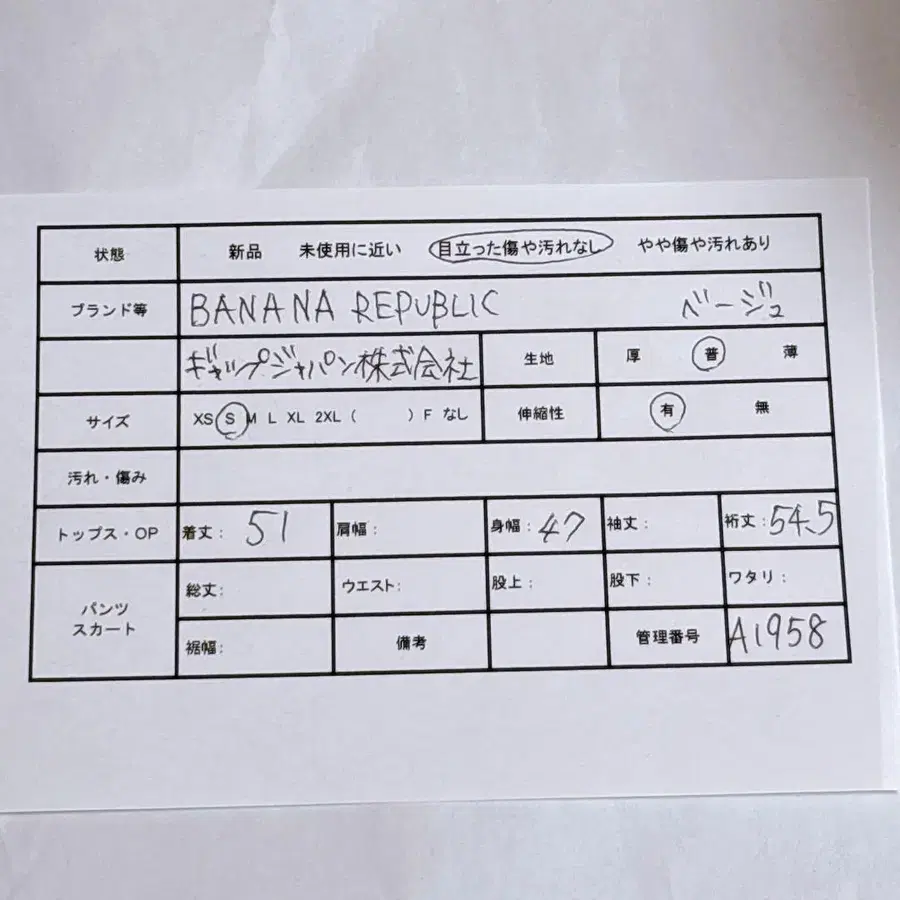 状態 新品 未使用に近い 目立った傷や汚れなし やや傷や汚れあり
ブランド等 BANANA REPUBLIC ベージュ
ギャップジャパン株式会社 生地 厚 普 薄
サイズ XS S M L XL 2XL ( ) F なし 伸縮性 有 無
汚れ・傷み
トップス・OP 着丈: 51 肩幅: 身幅: 47 袖丈: 裄丈: 54.5
パンツ スカート 総丈: ウエスト: 股上: 股下: ワタリ:
裾幅: 備考 管理番号 A1958